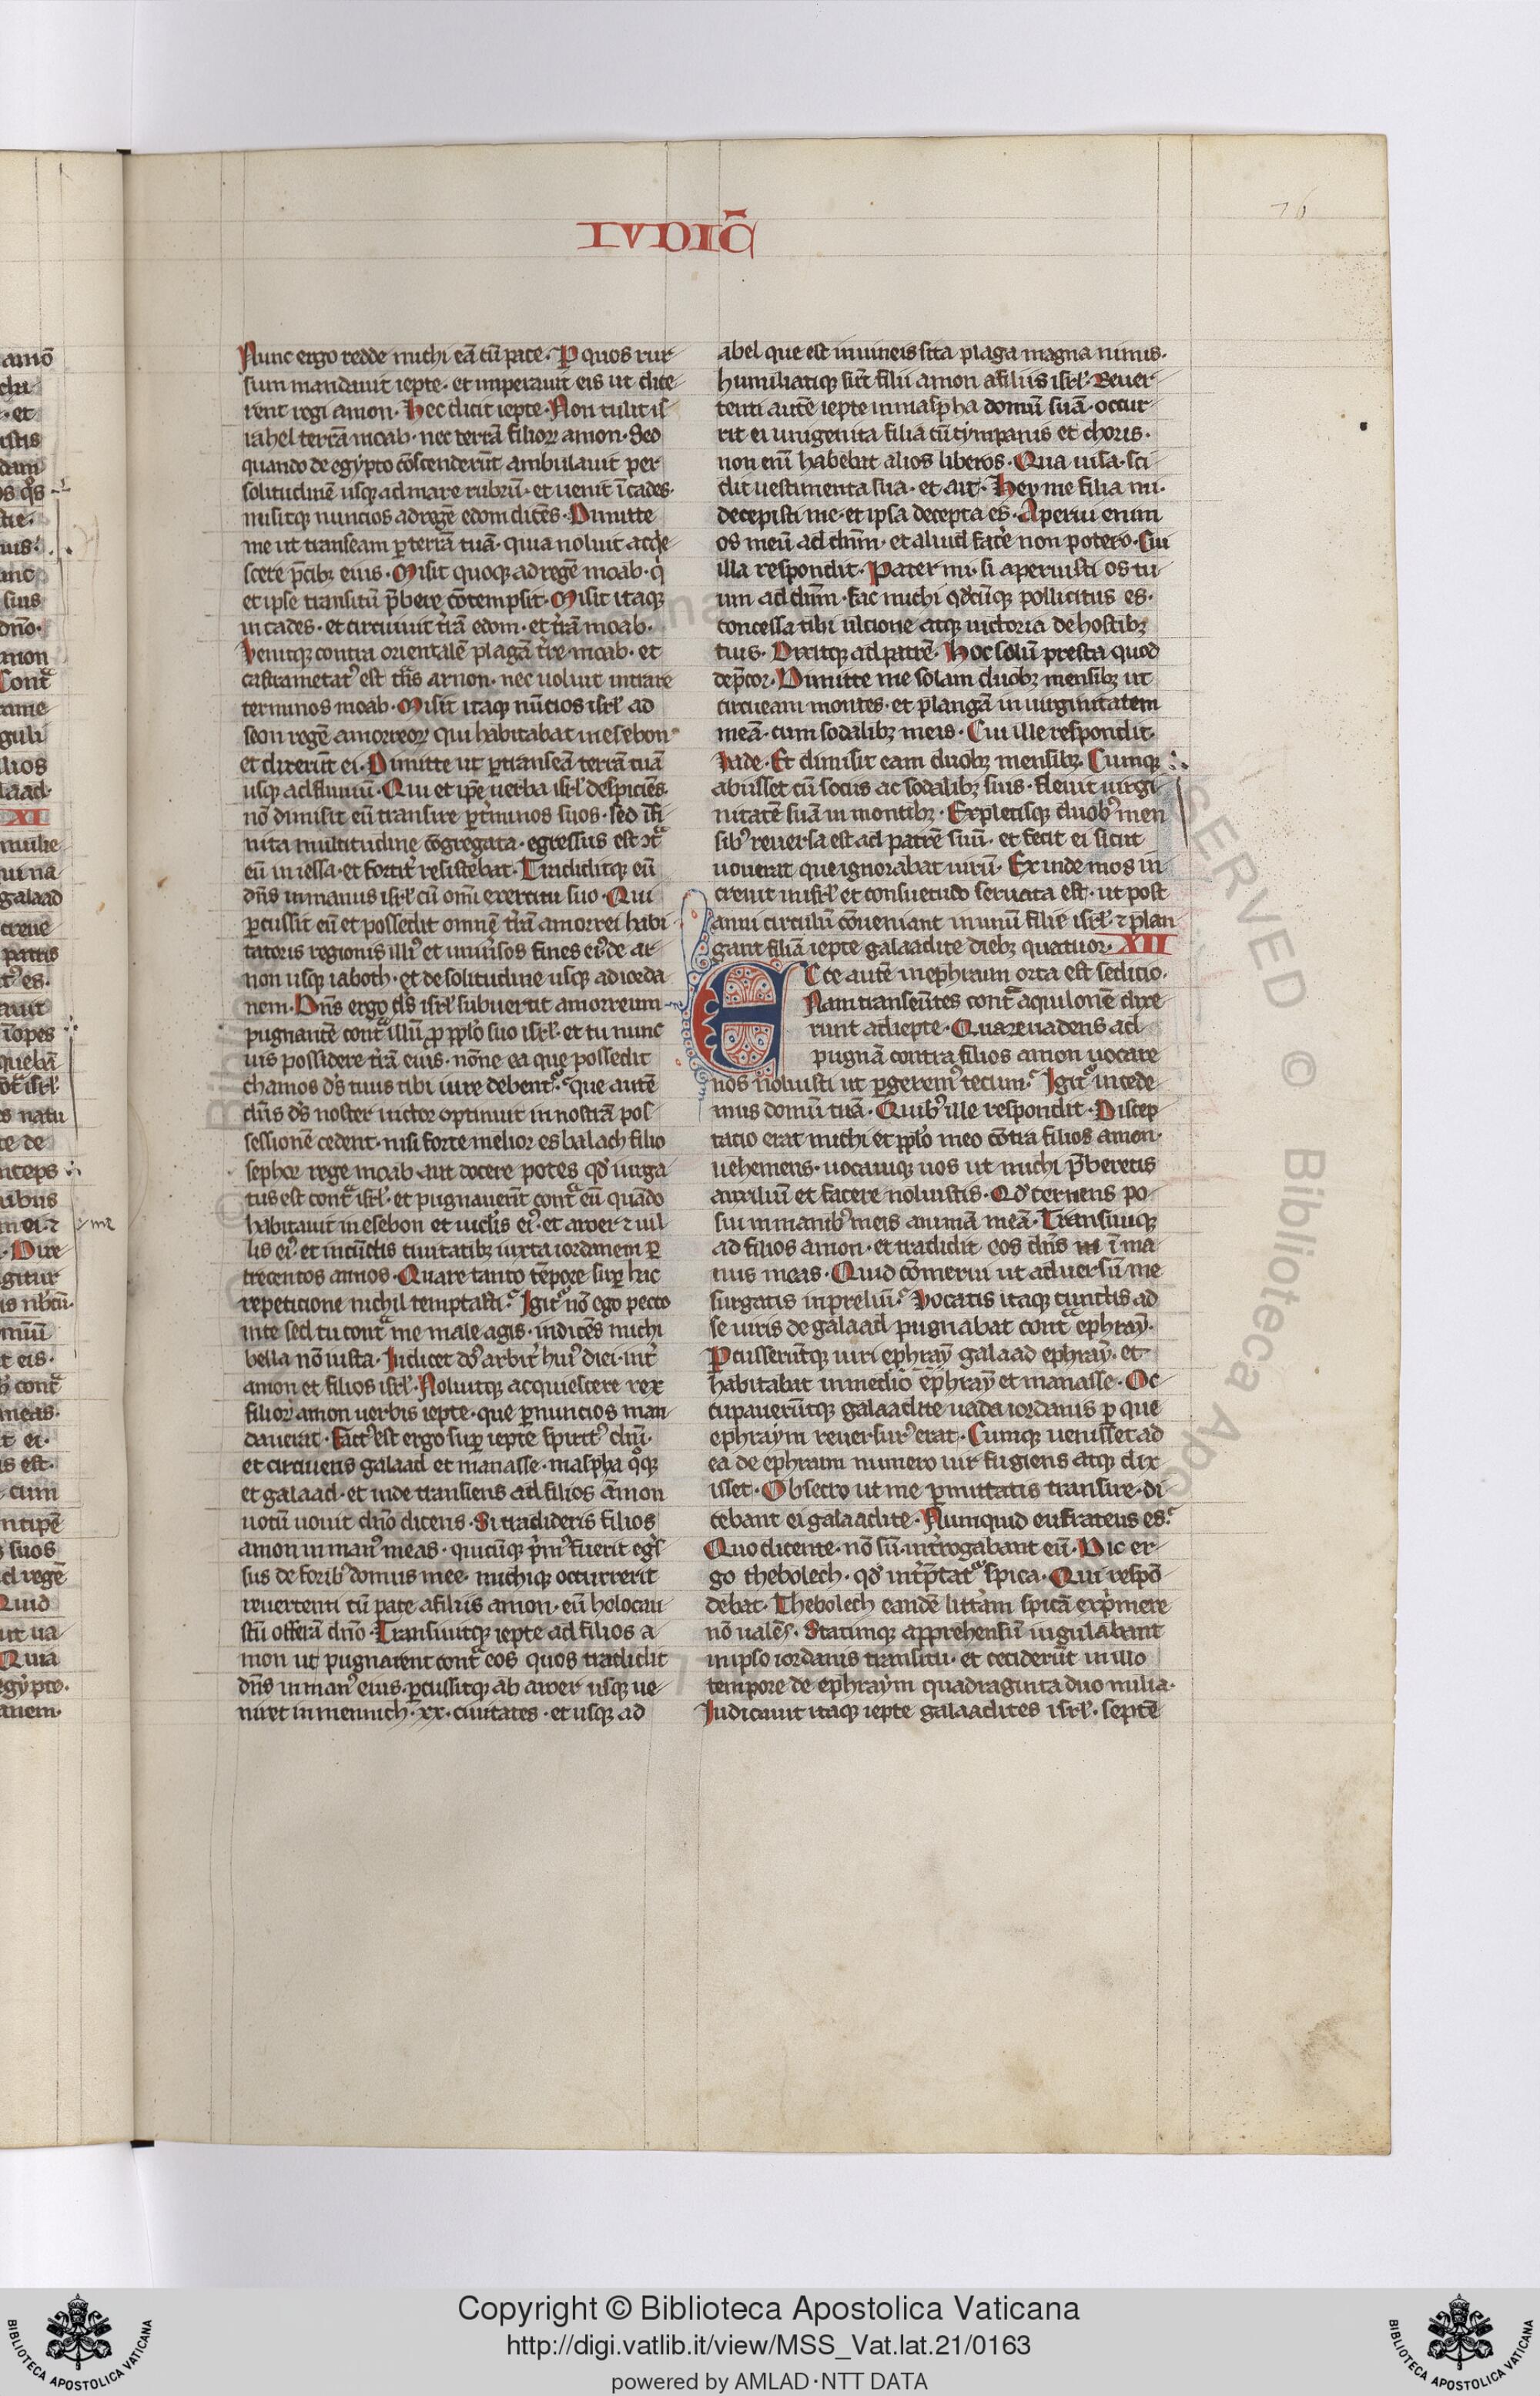 IVDIC̄
76
Nunc ergo redde michi eā cū pace. Per quos rur
sum mandauit iepte. et imperauit eis ut dice
rent regi amon. Hec dicit iepte. Non tulit is
rahel terrā moab. nec terrā filioꝝ amon. Sed
quando de egypto cōscenderūt ambulauit per
solitudinē usqꝫ ad mare rubrū. et uenit ī cades.
misitqꝫ nuncios ad regē edom dicēs. Dimitte
me ut transeam ꝑ terrā tuā. quia noluit acqͥe
scere p̄cibꝫ eius. Misit quoqꝫ ad regē moab. qͥ
et ipse transitū p̄bere cōtempsit. Misit itaqꝫ
in cades. et circuiuit t̄rā edom. et t̄rā moab.
Venitqꝫ contra orientalē plagā t̄re moab. et
castrametatꝰ est t̄ns arnon. nec uoluit intrare
terminos moab. Misit itaqꝫ nūcios isrl̄ ad
seon regē amorreoꝝ qui habitabat in esebon
et dixerūt ei. Dimitte ut ꝑtranseā terrā tuā
usqꝫ ad fluuiū. Qui et ip̄e uerba isrl̄ despiciēs.
nō dimisit eū transire ꝑ t̄minos suos. sed īfi
nita multitudine cōgregata. egressus est ↄͣt
eū in iessa. et fortit̄ resistebat. Tradiditqꝫ eū
dn̄s in manus isrl̄ cū om̄i exercitu suo. Qui
ꝑcussit eū et possedit omnē t̄rā amorrei habi
tatoris regionis illiꝰ et uniūsos fines eiꝰ de ar
non usqꝫ iaboth. et de solitudine usqꝫ ad iorda
nem. Dn̄s ergo ds̄ isrl̄ subuertit amorreum
pugnantē contͣ illū ꝓ pp̄lo suo isrl̄. et tu nunc
uis possidere t̄rā eius. nōne ea que possedit
chamos ds̄ tuus tibi iure debentᷣ. que autē
dn̄s ds̄ noster uictor optinuit in nostrā pos
sessionē cedent. nisi forte melior es balach filio
sephor rege moab. aut docere potes qd̄ iurga
tus est contͣ isrl̄. et pugnauerit contͣ eū quādo
habitauit in esebon et uicl̄is eiꝰ. et aroer ⁊ uil
lis eiꝰ et in cūctis ciuitatibꝫ iuxta iordanem ꝑ
trecentos annos. Quare tanto tēpore suꝑ hac
repeticione nichil temptasti. Igitᷣ nō ego pecco
in te sed tu contͣ me male agis. indicēs michi
bella nō iusta. Iudicet ds̄ arbit̄ huiꝰ diei. int̄
amon et filios isrl̄. Noluitqꝫ acquiescere rex
filioꝝ amon uerbis iepte. que ꝑ nuncios man
dauerat. Factꝰ est ergo suꝑ iepte spiritꝰ dn̄i.
et circuiens galaad et manasse. maspha qͦqꝫ
et galaad. et inde transiens ad filios āmon
uotū uouit dn̄o dicens. Si tradideris filios
amon in manꝰ meas. quicūqꝫ p̄mꝰ fuerit egr̄s
sus de foribꝰ domus mee. michiqꝫ occurrerit
reuertenti cū pace a filiis amon. eū holocau
stū offerā dn̄o. Transiuitqꝫ iepte ad filios a
mon ut pugnaret contͣ eos quos tradidit
dn̄s in manꝰ eius. ꝑcussitqꝫ ab aroer usqꝫ ue
niret in mennich. xx. ciuitates. et usqꝫ ad
abel que est in uineis sita plaga magna nimis.
humiliatiqꝫ sūt filii amon a filiis isrl̄. Reuer
tenti autē iepte in maspha domū suā. occur
rit ei unigenita filia cū tympanis et choris.
non enī habebat alios liberos. Qua uisa. sci
dit uestimenta sua. et ait. Hey me filia mi.
decepisti me. et ipsa decepta es. Aperui enim
os meū ad dn̄m. et aliud fac̄e non potero. Cui
illa respondit. Pater mi. si aperuisti os tu
um ad dn̄m. fac michi qd̄cūqꝫ pollicitus es.
concessa tibi ulcione atqꝫ uictoria de hostibꝫ
tuis. Dixitqꝫ ad patrē. Hoc solū presta quod
dep̄cor. Dimitte me solam duobꝫ mensibꝫ ut
circueam montes. et plangā in uirginitatem
meā. cum sodalibꝫ meis. Cui ille respondit.
Vade. Et dimisit eam duobꝫ mensibꝫ. Cumqꝫ
abiisset cū sociis ac sodalibꝫ suis. fleuit uirgi
nitatē suā in montibꝫ. Expletisqꝫ duobꝰ men
sibꝰ reuersa est ad patrē suū. et fecit ei sicut
uouerat que ignorabat uirū. Ex inde mos in
creuit in isrl̄ et consuetudo seruata est. ut post
anni circulū cōueniant in unū filie isrl̄ ⁊ plan
gant filiā iepte galaadite diebꝫ quatuor. XII
Ecce autē in ephraim orta est sedicio.
Nam transeūtes contͣ aquilonē dixe
runt ad iepte. Quare uadens ad
pugnā contra filios amon uocare
nos noluisti ut ꝑgeremꝰ tecum. Igitᷣ incede
mus domū tuā. Quibꝰ ille respondit. Discep
tacio erat michi et pp̄lo meo cōtra filios amon.
uehemens. uocauiqꝫ uos ut michi p̄beretis
auxiliū et facere noluistis. Qd̄ cernens po
sui in manibꝰ meis animā meā. Transiuiqꝫ
ad filios amon. et tradidit eos dn̄s in ī ma
nus meas. Quid cōmerui ut aduersū me
surgatis in preliū. Vocatis itaqꝫ cunctis ad
se uiris de galaad pugnabat contͣ ephraȳ.
Ꝑcusserūtqꝫ uiri ephraȳ galaad ephraȳ. et
habitabat in medio ephraȳ et manasse. Oc
cupauerūtqꝫ galaadite uada iordanis ꝑ que
ephraym reuersurꝰ erat. Cumqꝫ uenisset ad
ea de ephraim numero uir fugiens atqꝫ dix
isset. Obsecro ut me ꝑmittatis transire. di
cebant ei galaadite. Numquid eufrateus es.
Quo dicente. nō sū. int̄rogabant eū. Dic er
go thebolech. qd̄ int̄p̄tatᷣ spica. Qui respō
debat. Thebolech eandē litt̄am spicā exp̄mere
nō ualēs. Statimqꝫ apprehensū iugulabant
in ipso iordanis transitu. et ceciderūt in illo
tempore de ephraym quadraginta duo milia.
Iudicauit itaqꝫ iepte galaadites isrl̄. septē
Copyright © Biblioteca Apostolica Vaticana
http://digi.vatlib.it/view/MSS_Vat.lat.21/0163
powered by AMLAD·NTT DATA
BIBLIOTECA APOSTOLICA VATICANA
BIBLIOTECA APOSTOLICA VATICANA